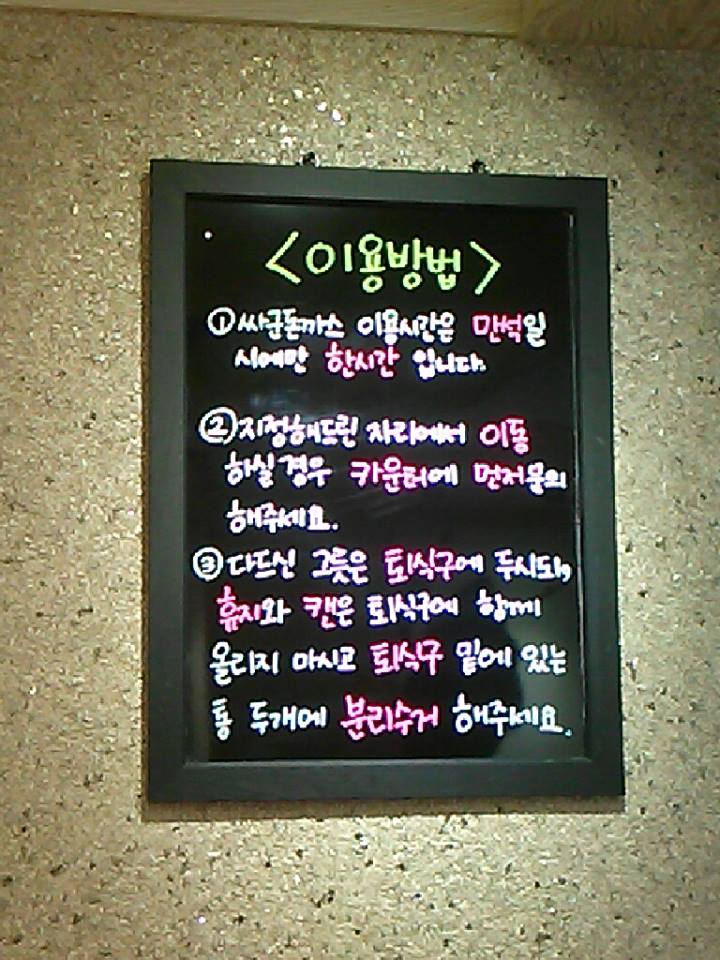 <이용방법>
① 싸군돈까스 이용시간은 만석일
시에만 한시간 입니다.
② 지정해드린 자리에서 이동
하실 경우 카운터에 먼저문의
해주세요.
③ 다드신 그릇은 퇴식구에 두시되,
휴지와 캔은 퇴식구에 함께
올리지 마시고 퇴식구 밑에 있는
통 두개에 분리수거 해주세요.